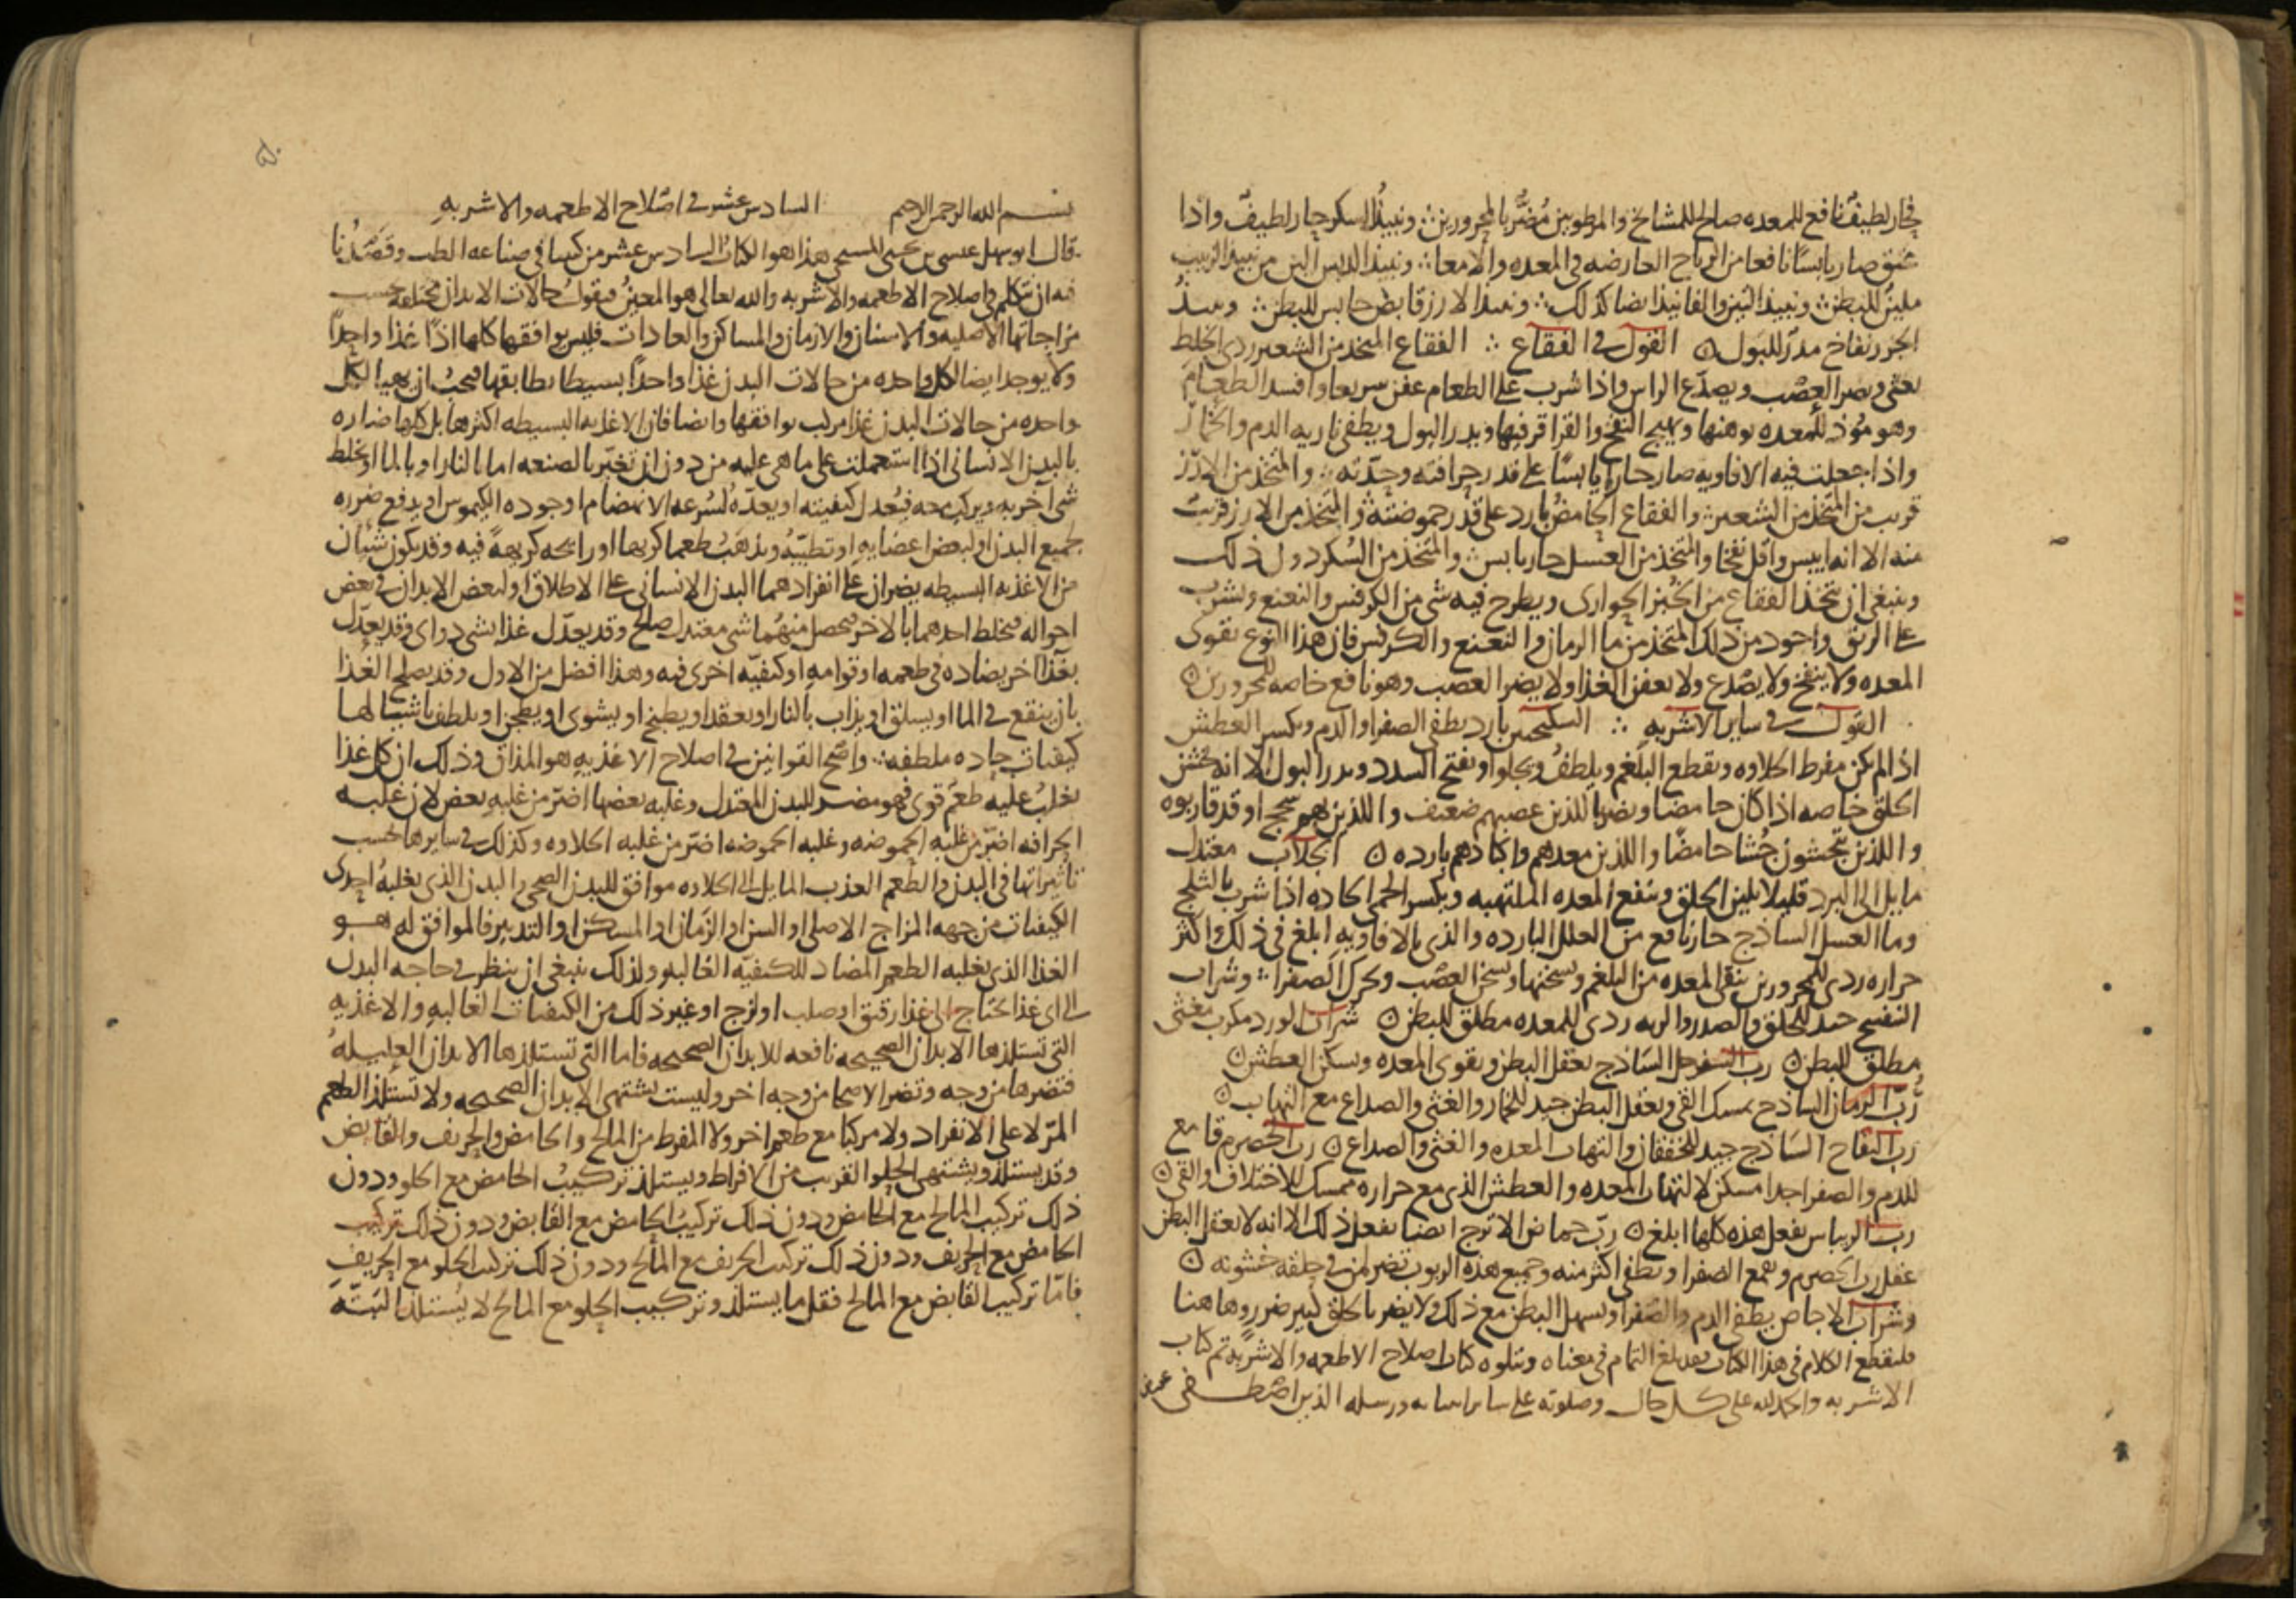 فحار لطيف نافع للمعده صالح للمشايخ والمرطوبين مُضرّ بالمحرورين ونبيذ السكر حار لطيف واذا
عتق صار يابسًا نافعا من الرياح العارضه في المعده والامعا ونبيذ الدبس الين من نبيذ الزبيب
ملين للبطن ونبيذ التين والفانيذ ايضا كذلك ونبيذ الارز قابض حابس للبطن ونبيذ
الجزر نفاخ مدرّ للبول القول في الفقاع الفقاع المتخذ من الشعير ردي الخلط
يغثي ويضر العصب ويصدّع الراس واذا شرب على الطعام عفن سريعا وافسد الطعام
وهو مؤذ للمعده يوهنها ويهيج النفخ والقراقر فيها ويدر البول ويطفي ناريه الدم والخمار
واذا جعلت فيه الافاويه صار حارا يابسًا على قدر حرافته وحدّته والمتخذ من الارز
قريب من المتخذ من الشعير والفقاع الحامض بارد على قدر حموضته والمتخذ من الارز قريب
منه الا انه ايبس واقل نفخا والمتخذ من العسل حار يابس والمتخذ من السكر دون ذلك
وينبغي ان يتخذ الفقاع من الخبز الحواري ويطرح فيه شي من الكرفس والنعنع ويشرب
على الريق واجود من ذلك المتخذ من ما الرمان والنعنع والكرفس فان هذا النوع يقوى
المعده ولا ينفخ ولا يصدع ولا يعفن الغذا ولا يضر العصب وهو نافع خاصه للمحرورين
القول في ساير الاشربه السكنجبين بارد يطفي الصفرا والدم ويكسر العطش
اذا لم يكن مفرط الحلاوه ويقطع البلغم ويلطف ويجلوا ويفتح السدد ويدر البول الا انه يخشن
الحلق خاصه اذا كان حامضا ويضر بالذين عصبهم ضعيف واللذين بهم سحج او قد قاربوه
واللذين يتجشون جُشا حامضًا واللذين معدهم واكبادهم بارده الجلاب معتدل
مايل الى البرد قليلا يلين الحلق وينفع المعده الملتهبه ويكسر الحمى الحاده اذا شرب بالثلج
وما العسل الساذج حار نافع من العلل البارده والذي بالافاويه ابلغ في ذلك واكثر
حراره ردي للمحرورين ينقى المعده من البلغم ويسخنها ويسخن العصب ويحرك الصفرا وشراب
البنفسج جيد للحلق والصدر والريه ردي للمعده مطلق للبطن شراب الورد مكرب مغثي
مطلق للبطن رب السفرجل الساذج يعقل البطن ويقوى المعده ويسكن العطش
رُبّ الرمان الساذج يمسك القي ويعقل البطن جيد للخمار والغثي والصداع مع التهاب
رب التفاح الساذج جيد للخفقان والتهاب المعده والغثي والصداع رب الحصرم قامع
للدم والصفرا جدا مسكن لالتهاب المعده والعطش الذي مع حراره ممسك للاختلاف والقي
رب الريباس يفعل هذه كلها ابلغ ربّ حماض الاترج ايضا يفعل ذلك الا انه لا يعقل البطن
عقل رب الحصرم ويقمع الصفرا ويطفي اكثر منه وجميع هذه الربوب تضر لمن في حلقه خشونه
وشراب الاجاص يطفي الدم والصفرا ويسهل البطن مع ذلك ولا يضر بالحلق كبير ضرر وهاهنا
فلينقطع الكلام في هذا الكتاب فقد بلغ التمام في معناه ويتلوه كتاب اصلاح الاطعمه والاشربه تم كتاب
الاشربه والحمد لله على كل حال وصلوته على ساير انبيائه ورسله الذين اصطفى
بسم الله الرحمن الرحيم السادس عشر في اصلاح الاطعمه والاشربه
قال ابو سهل عيسى بن يحيى المسيحي هذا هو الكتاب السادس عشر من كتبنا في صناعه الطب وقَصْدُنا
فيه ان نتكلم في اصلاح الاطعمه والاشربه والله تعالى هو المعين فنقول حالات الابدان مختلفه حسب
مزاجاتها الاصليه والاسنان والازمان والمساكن والعادات فليس يوافقها كلها اذًا غذا واحدًا
ولا يوجد ايضا لكل واحده من حالات البدن غذا واحدًا بسيطا يطابقها فيجب ان يهيا لكل
واحده من حالات البدن غذا مركب يوافقها وايضا فان الاغذيه البسيطه اكثرها بل كلها ضاره
بالبدن الانساني اذا استعملت على ما هي عليه من دون ان تغيّر بالصنعه اما بالنار او بالما او بخلط
شي آخر به ويركب معه فيُعدل كيفيته او يعدّه لسُرعه الانهضام او جوده الكيموس او يدفع ضرره
لجميع البدن او لبعض اعضايه او تطيّبه ويذهب طعما كريها او رايحه كريهةً فيه وقد يكون شيئان
من الاغذيه البسيطه يضران على انفرادهما البدن الانساني على الاطلاق او لبعض الابدان في بعض
احواله فيخلط احدهما بالاخر فيحصل منهما شي معتدل صالح وقد يعدّل غذا بشي دواي وقد يعدّل
بغذا اخر يضاده في طعمه او قوامه او كيفيّه اخرى فيه وهذا افضل من الاول وقد يصلح الغذا
بان ينقع في الما او يسلق او يذاب بالنار او يعقد او يطبخ او يشوى او يطجن او يلطف باشيا لها
كيفيات حاده ملطفه واصح القوانين في اصلاح الاغذيه هو المذاق وذلك ان كل غذا
يغلبُ عليه طعم قوى فهو مضر للبدن المعتدل وغلبه بعضها اضرّ من غلبه بعض لان غلبه
الحرافه اضرّ من غلبه الحموضه وغلبه الحموضه اضرّ من غلبه الحلاوه وكذلك في سايرها بحسب
تاثيراتها في البدن والطعم العذب المايل الى الحلاوه موافق للبدن الصحي والبدن الذي يغلبه احدى
الكيفيات من جهه المزاج الاصلي او السن او الزمان او المسكن او التدبير فالموافق له هو
الغذا الذي يغلبه الطعم المضاد للكيفيّه الغالبه ولذلك ينبغي ان ينظر في حاجه البدن
الى اى غذا يحتاج الى غذا رقيق او صلب او لزج او غير ذلك من الكيفيات الغالبه والاغذيه
التي تستلذها الابدان الصحيحه نافعه للابدان الصحيحه فاما التي تستلذها الابدان العليله
فتضرها من وجه وتضر الاصحا من وجه اخر وليست يشتهى الابدان الصحيحه ولا تستلذ الطعم
المرّ لا على الانفراد ولا مركبا مع طعم اخر ولا المفرط من المالح والحامض والحريف والقابض
وقد يستلذ ويشتهى الحلو القريب من الافراط ويستلذ تركيبُ الحامض مع الحلو ودون
ذلك تركيب المالح مع الحامض ودون ذلك تركيب الحامض مع القابض ودون ذلك تركيب
الحامض مع الحريف ودون ذلك تركيب الحريف مع المالح ودون ذلك تركيب الحلو مع الحريف
فامّا تركيب القابض مع المالح فقل ما يستلذ وتركيب الحلو مع المالح لا يُستلذ البتّه